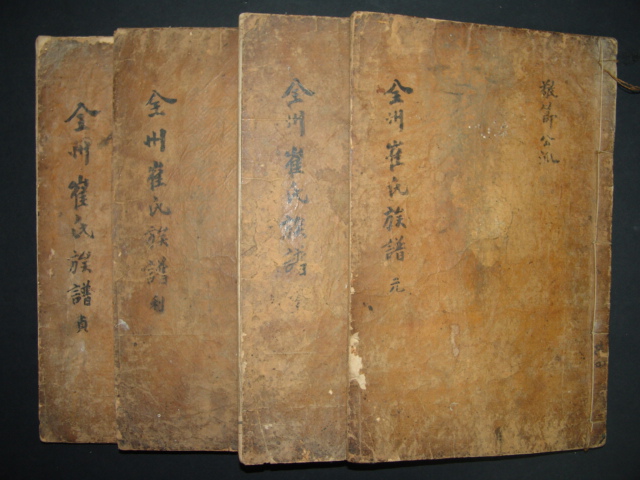 全州崔氏族譜 元
全州崔氏族譜
全州崔氏族譜 利
全州崔氏族譜 貞